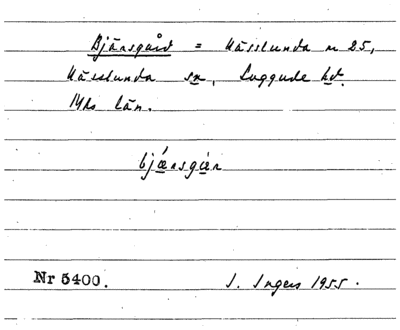 Bjärsgård = Kässlunda n 25,
Kässlunda sn, Luggude hd.
Mhs län.
bjæ̀rsgiær
Nr 5400.
I. Ingers 1955.